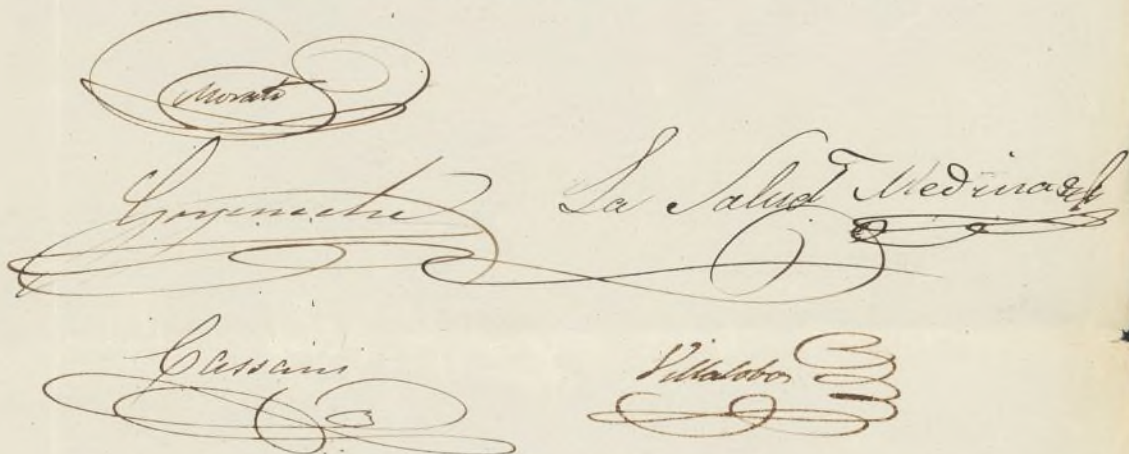 Morata
Goyeneche
La Salud
Medina
Cassani
Villalobos